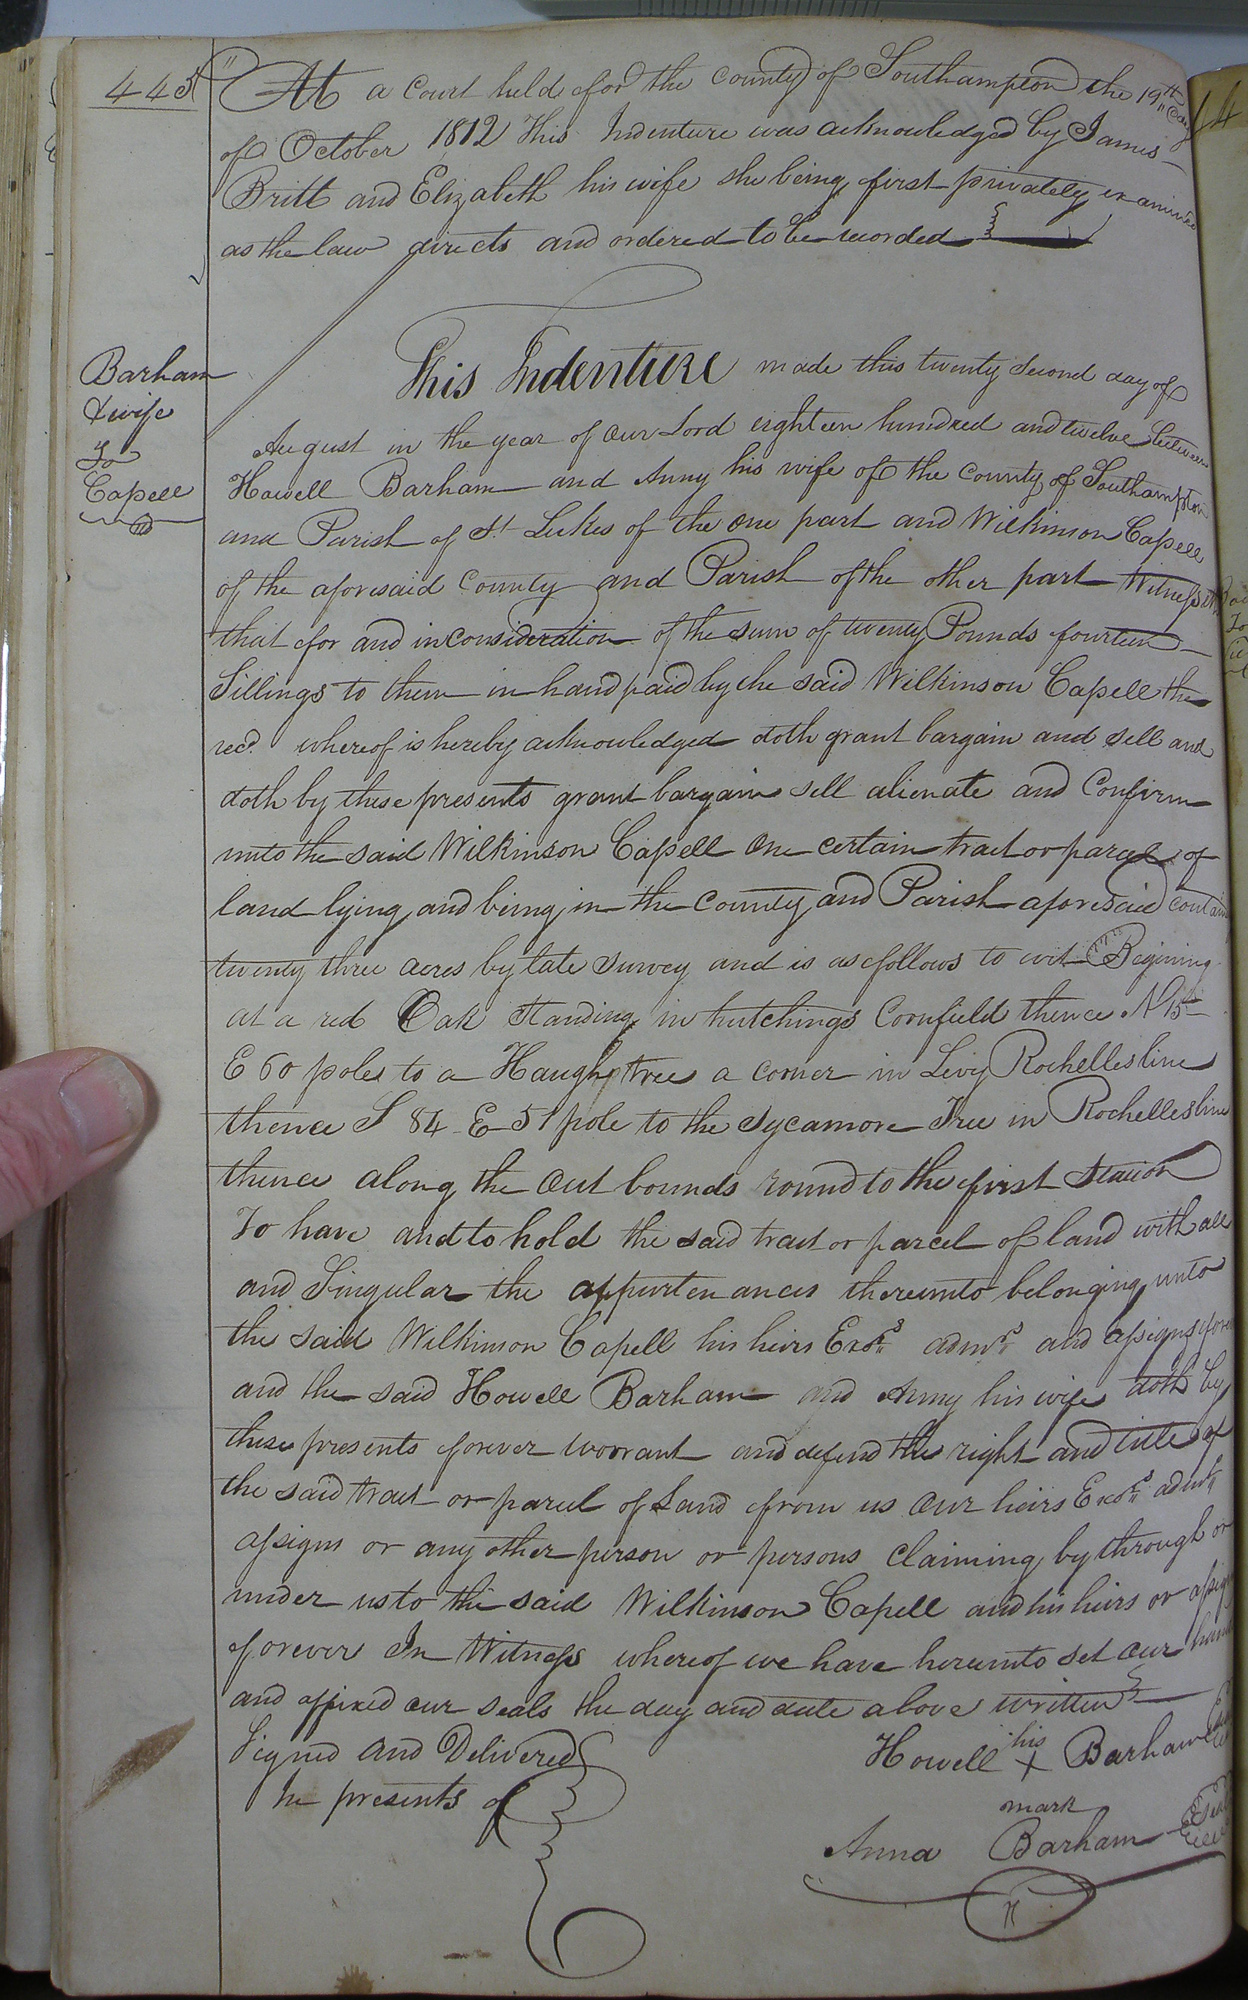 445
At a Court held for the County of Southampton the 19th day
of October 1812 This Indenture was acknowledged by James
Britt and Elizabeth his wife she being first privately examined
as the law directs and ordered to be recorded
Barham
& wife
To
Capell
This Indenture made this twenty second day of
August in the year of our Lord eighteen hundred and twelve between
Howell Barham and Anny his wife of the County of Southampton
and Parish of St. Lukes of the one part and Wilkinson Capell
of the aforesaid County and Parish of the other part Witnesseth
that for and in consideration of the sum of twenty Pounds fourteen
Sillings to them in hand paid by he said Wilkinson Capell the
recd. whereof is hereby acknowledged doth grant bargain and sell and
doth by these presents grant bargain sell alienate and Confirm
unto the said Wilkinson Capell One certain tract or parcel of
land lying and being in the County and Parish aforesaid contain
twenty three acres by late survey and is as follows to wit Begining
at a red Oak Standing in hutchings Cornfield thence N 15
E 60 poles to a tree a corner in Levy Rochelles line
thence S 84 E 51 pole to the Sycamore Tree in Rochelles line
thence along the out bounds round to the first Station
To have and to hold the said tract or parcel of land with all
and Singular the appurtenances thereunto belonging unto
the said Wilkinson Capell his heirs Exors admrs and assigns forever
and the said Howell Barham and Anny his wife doth by
these presents forever worrant and defend the right and title of
the said tract or parcel of Land from us our heirs Exors admrs
assigns or any other person or persons Claiming by through or
under us to the said Wilkinson Capell and his heirs or assigns
forever In Witness whereof we have hereunto set our hands
and affixed our seals the day and date above written
Signed and Delivered
In presents of
Howell his X Barham
mark
Anna Barham Seal